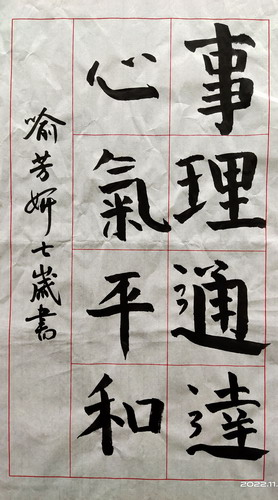 事理通達
心氣平和
喻芳妍七歲書
2022.11.